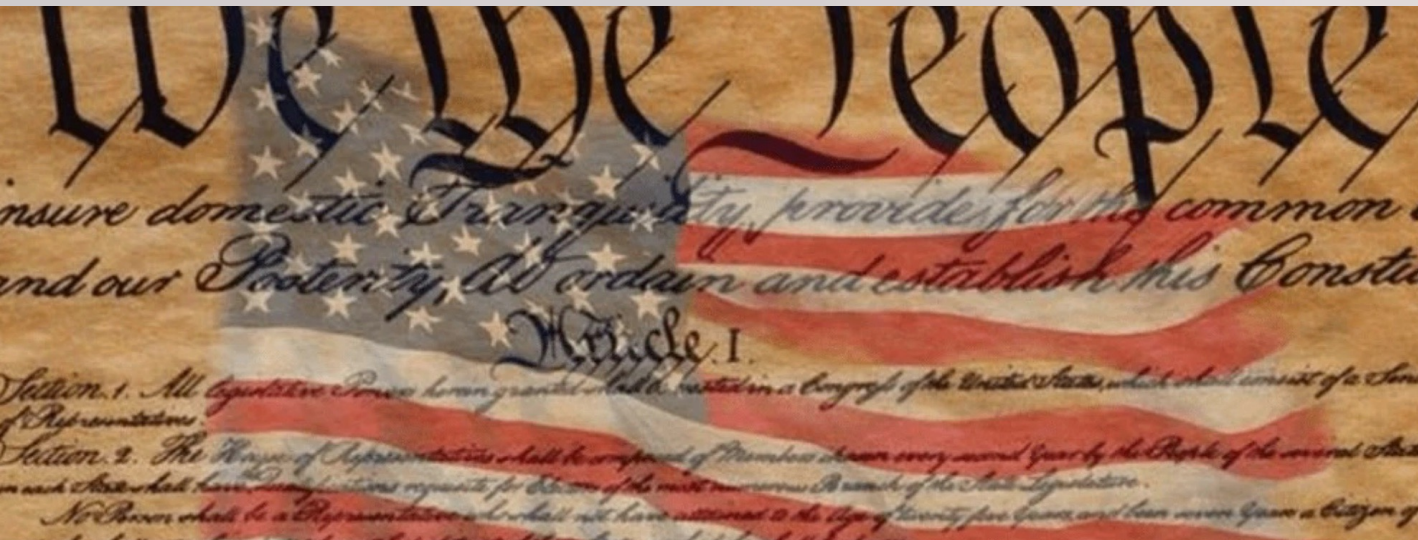 We the People
insure domestic Tranquility, provide for the common
and our Posterity, do ordain and establish this Constitu
Article. I.
Section. 1. All legislative Powers herein granted shall be vested in a Congress of the United States, which shall consist of a Sen
of Representatives.
Section. 2. The House of Representatives shall be composed of Members chosen every second Year by the People of the several States
in each State shall have Qualifications requisite for Electors of the most numerous Branch of the State Legislature.
No Person shall be a Representative who shall not have attained to the Age of twenty five Years, and been seven Years a Citizen of